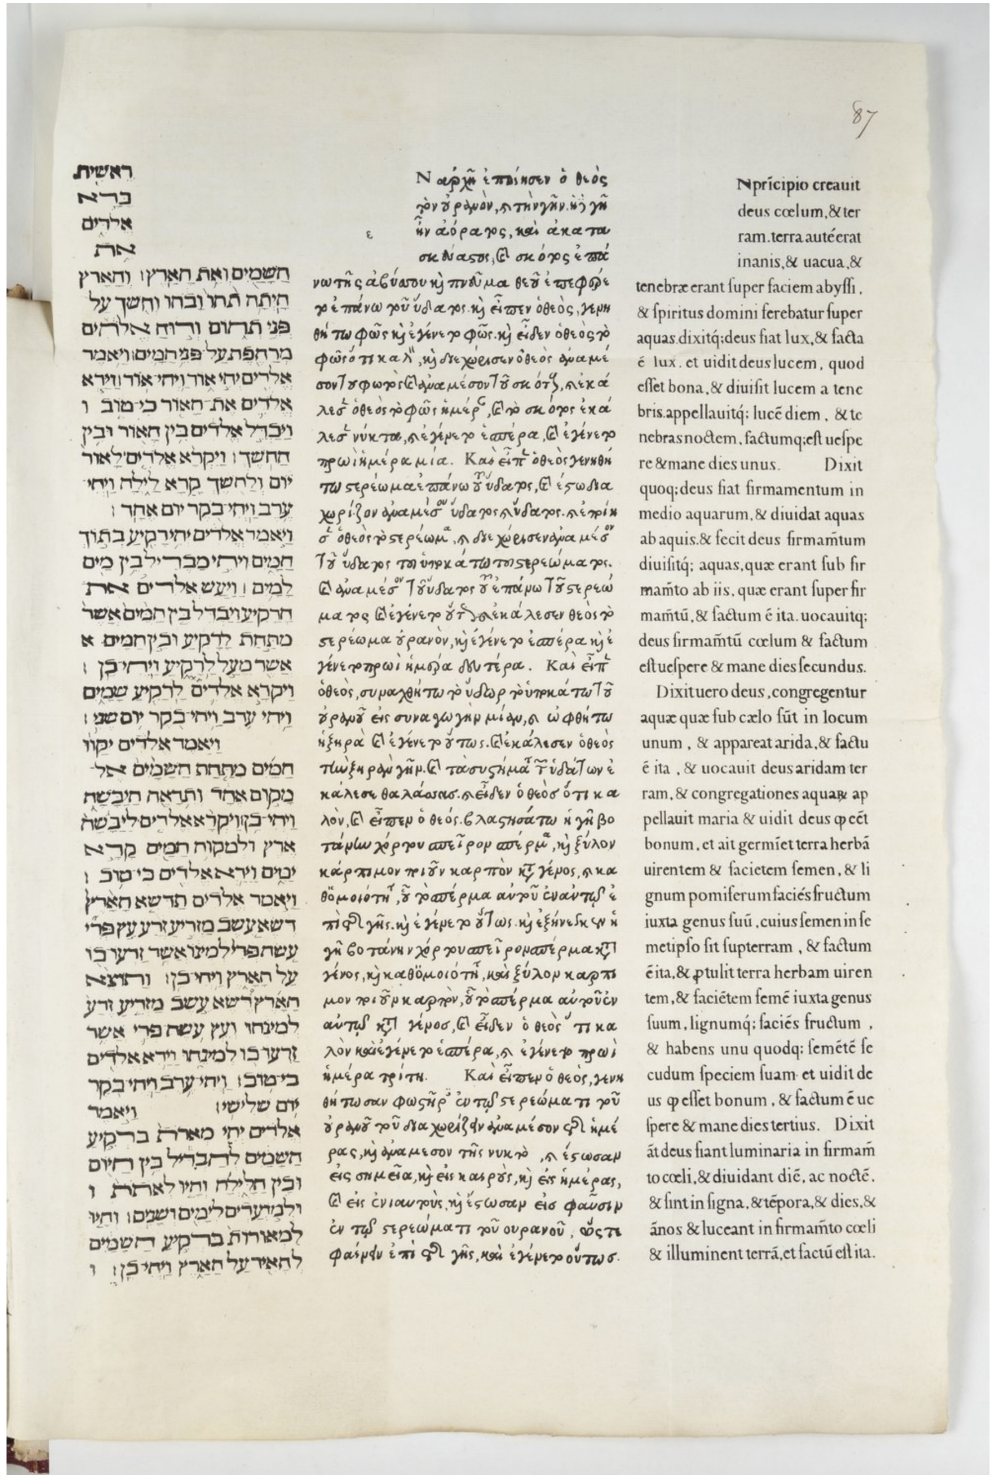 87
ראשית
ברא
אלהים
את
השמים ואת הארץ׃ והארץ
היתה תהו ובהו וחשך על
פני תהום ורוח אלהים
מרחפת על פני המים׃ ויאמר
אלהים יהי אור ויהי אור׃ וירא
אלהים את האור כי טוב ו
ויבדל אלהים בין האור ובין
החשך׃ ויקרא אלהים לאור
יום ולחשך קרא לילה ויהי
ערב ויהי בקר יום אחד׃
ויאמר אלהים יהי רקיע בתוך
המים ויהי מבדיל בין מים
למים׃ ויעש אלהים את
הרקיע ויבדל בין המים אשר
מתחת לרקיע ובין המים א
אשר מעל לרקיע ויהי כן׃
ויקרא אלהים לרקיע שמים
ויהי ערב ויהי בקר יום שני׃
ויאמר אלהים יקוו
המים מתחת השמים אל
מקום אחד ותראה היבשה
ויהי כן׃ ויקרא אלהים ליבשה
ארץ ולמקוה המים קרא
ימים וירא אלהים כי טוב׃
ויאמר אלהים תדשא הארץ
דשא עשב מזריע זרע עץ פרי
עשה פרי למינו אשר זרעו בו
על הארץ ויהי כן׃ ותוצא
הארץ דשא עשב מזריע זרע
למינהו ועץ עשה פרי אשר
זרעו בו למינהו וירא אלהים
כי טוב׃ ויהי ערב ויהי בקר
יום שלישי׃ ויאמר
אלהים יהי מארת ברקיע
השמים להבדיל בין היום
ובין הלילה והיו לאתת ו
ולמועדים לימים ושנים׃ והיו
למאורות ברקיע השמים
להאיר על הארץ ויהי כן׃ ו
Ν αρχῆ ἐποίησεν ὁ θεὸς
τὸν οὐρανὸν, καὶ τὴν γῆν. ἡ δὲ γῆ
ε ἦν ἀόρατος, καὶ ἀκατα
σκεύαστος, καὶ σκότος ἐπά
νω τῆς ἀβύσσου καὶ πνεῦμα θεοῦ ἐπεφέρε
το ἐπάνω τοῦ ὕδατος. καὶ εἶπεν ὁ θεὸς, γενη
θήτω φῶς καὶ ἐγένετο φῶς. καὶ εἶδεν ὁ θεὸς τὸ
φῶς ὅτι καλὸν, καὶ διεχώρισεν ὁ θεὸς ἀναμέ
σον τοῦ φωτὸς καὶ ἀναμέσον τοῦ σκότους, καὶ ἐκά
λεσεν ὁ θεὸς τὸ φῶς ἡμέραν, καὶ τὸ σκότος ἐκά
λεσε νύκτα, καὶ ἐγένετο ἑσπέρα, καὶ ἐγένετο
πρωὶ ἡμέρα μία. Καὶ εἶπεν ὁ θεὸς γενηθή
τω στερέωμα ἐπάνω τοῦ ὕδατος, καὶ ἔστω δια
χωρίζον ἀναμέσον ὕδατος καὶ ὕδατος. καὶ ἐποίη
σεν ὁ θεὸς τὸ στερέωμα, καὶ διεχώρισεν ἀναμέσον
τοῦ ὕδατος τοῦ ὑποκάτω τοῦ στερεώματος.
καὶ ἀναμέσον τοῦ ὕδατος τοῦ ἐπάνω τοῦ στερεώ
ματος καὶ ἐγένετο οὕτως καὶ ἐκάλεσεν θεὸς τὸ
στερέωμα οὐρανὸν, καὶ ἐγένετο ἑσπέρα καὶ ἐ
γένετο πρωὶ ἡμέρα δευτέρα. Καὶ εἶπεν
ὁ θεὸς, συναχθήτω τὸ ὕδωρ τὸ ὑποκάτω τοῦ
οὐρανοῦ εἰς συναγωγὴν μίαν, καὶ ὠφθήτω
ἡ ξηρὰ καὶ ἐγένετο οὕτως. καὶ ἐκάλεσεν ὁ θεὸς
τὴν ξηρὰν γῆν. καὶ τὰ συστήματα τῶν ὑδάτων ἐ
κάλεσε θαλάσσας. καὶ εἶδεν ὁ θεὸς ὅτι κα
λὸν, καὶ εἶπεν ὁ θεὸς. βλαστησάτω ἡ γῆ βο
τάνην χόρτου σπεῖρον σπέρμα, καὶ ξύλον
κάρπιμον ποιοῦν καρπὸν κατὰ γένος, καὶ κα
θ' ὁμοιότητα, οὗ τὸ σπέρμα αὐτοῦ ἐν αὐτῷ ἐ
πὶ τῆς γῆς. καὶ ἐγένετο οὕτως. καὶ ἐξήνεγκεν ἡ
γῆ βοτάνην χόρτου σπεῖρον σπέρμα κατὰ
γένος, καὶ καθ' ὁμοιότητα, καὶ ξύλον κάρπι
μον ποιοῦν καρπὸν, οὗ τὸ σπέρμα αὐτοῦ ἐν
αὐτῷ κατὰ γένος, καὶ εἶδεν ὁ θεὸς ὅτι κα
λὸν καὶ ἐγένετο ἑσπέρα, καὶ ἐγένετο πρωὶ
ἡμέρα τρίτη. Καὶ εἶπεν ὁ θεὸς, γενη
θήτωσαν φωστῆρες ἐν τῷ στερεώματι τοῦ
οὐρανοῦ τοῦ διαχωρίζειν ἀναμέσον τῆς ἡμέ
ρας, καὶ ἀναμεσον τῆς νυκτὸς, καὶ ἔστωσαν
εἰς σημεῖα, καὶ εἰς καιροὺς, καὶ εἰς ἡμέρας,
καὶ εἰς ἐνιαυτοὺς, καὶ ἔστωσαν εἰσ φαῦσιν
ἐν τῷ στερεώματι τοῦ ουρανοῦ, ὥστε
φαίνειν ἐπὶ τῆς γῆς, καὶ ἐγένετο οὕτωσ.
N prĩcipio creauit
deus cœlum, & ter
ram. terra autē erat
inanis, & uacua, &
tenebræ erant super faciem abyssi,
& spiritus domini ferebatur super
aquas. dixitq; deus fiat lux, & facta
ē lux. et uidit deus lucem, quod
esset bona, & diuisit lucem a tene
bris. appellauitq; lucē diem, & te
nebras noctem, factumq; est uespe
re & mane dies unus. Dixit
quoq; deus fiat firmamentum in
medio aquarum, & diuidat aquas
ab aquis. & fecit deus firmam̃tum
diuisitq; aquas, quæ erant sub fir
mam̃to ab iis, quæ erant super fir
mam̃tũ, & factum ē ita. uocauitq;
deus firmam̃tũ cœlum & factum
est uespere & mane dies secundus.
Dixit uero deus, congregentur
aquæ quæ sub cælo sũt in locum
unum, & appareat arida, & factu
ē ita, & uocauit deus aridam ter
ram, & congregationes aquaꝝ ap
pellauit maria & uidit deus ꝙ eēt
bonum, et ait germiēt terra herbã
uirentem & facietem semen, & li
gnum pomiferum faciēs fructum
iuxta genus suũ, cuius semen in se
metipso sit sup terram, & factum
ē ita, & ꝓtulit terra herbam uiren
tem, & faciētem semē iuxta genus
suum, lignumq; faciēs fructum,
& habens unu quodq; semētē se
cudum speciem suam et uidit de
us ꝙ esset bonum, & factum ē ue
spere & mane dies tertius. Dixit
ãt deus fiant luminaria in firmam̃
to cœli, & diuidant diē, ac noctē,
& sint in signa, & tēpora, & dies, &
ãnos & luceant in firmam̃to cœli
& illuminent terrã, et factũ est ita.